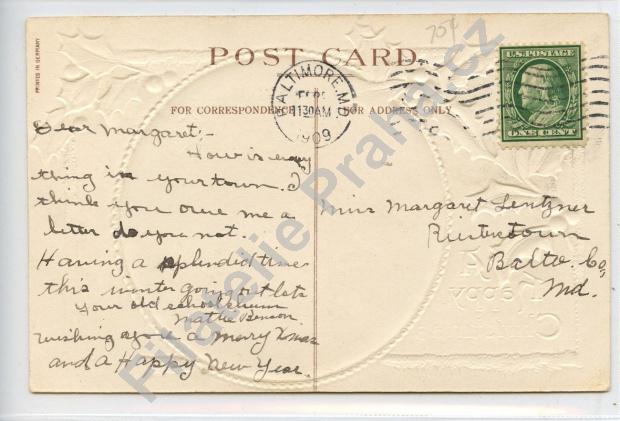 PRINTED IN GERMANY
POST CARD
70¢
U.S. POSTAGE
ONE CENT
BALTIMORE, MD.
1130AM
1909
FOR CORRESPONDENCE
FOR ADDRESS ONLY
Dear Margaret:-
How is every
thing in your town. I
think you owe me a
letter do you not.
Having a splendid time
this winter going out lots
your old school chum
Benson
wishing you a Merry Xmas
and a Happy New Year.
Miss Margaret Lentzner
Balto. Co,
Md.
Filatelie Praha.cz